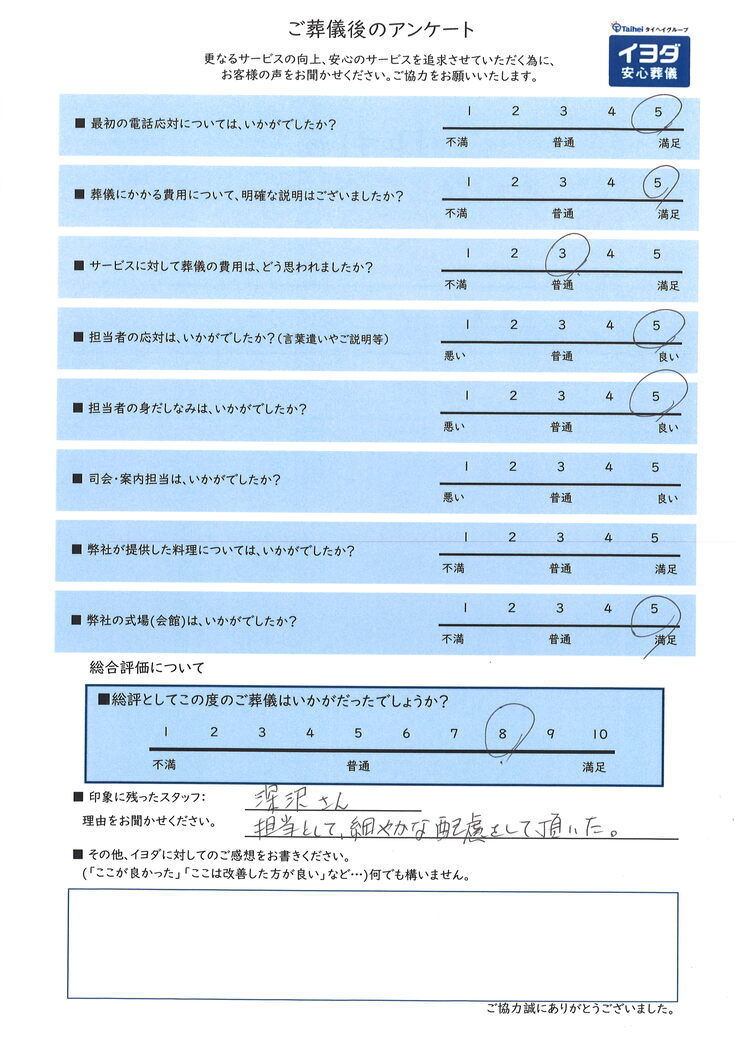 ご葬儀後のアンケート
Taihei タイヘイグループ
イヨダ
安心葬儀
更なるサービスの向上、安心のサービスを追求させていただく為に、
お客様の声をお聞かせください。ご協力をお願いいたします。
■ 最初の電話応対については、いかがでしたか?
1 2 3 4 5
不満 普通 満足
■ 葬儀にかかる費用について、明確な説明はございましたか?
1 2 3 4 5
不満 普通 満足
■ サービスに対して葬儀の費用は、どう思われましたか?
1 2 3 4 5
不満 普通 満足
■ 担当者の応対は、いかがでしたか?(言葉遣いやご説明等)
1 2 3 4 5
悪い 普通 良い
■ 担当者の身だしなみは、いかがでしたか?
1 2 3 4 5
悪い 普通 良い
■ 司会・案内担当は、いかがでしたか?
1 2 3 4 5
悪い 普通 良い
■ 弊社が提供した料理については、いかがでしたか?
1 2 3 4 5
不満 普通 満足
■ 弊社の式場(会館)は、いかがでしたか?
1 2 3 4 5
不満 普通 満足
総合評価について
■総評としてこの度のご葬儀はいかがだったでしょうか?
1 2 3 4 5 6 7 8 9 10
不満 普通 満足
■ 印象に残ったスタッフ: 深沢さん
理由をお聞かせください。 担当として、細やかな配慮をして頂いた。
■ その他、イヨダに対してのご感想をお書きください。
(「ここが良かった」「ここは改善した方が良い」など…)何でも構いません。
ご協力誠にありがとうございました。